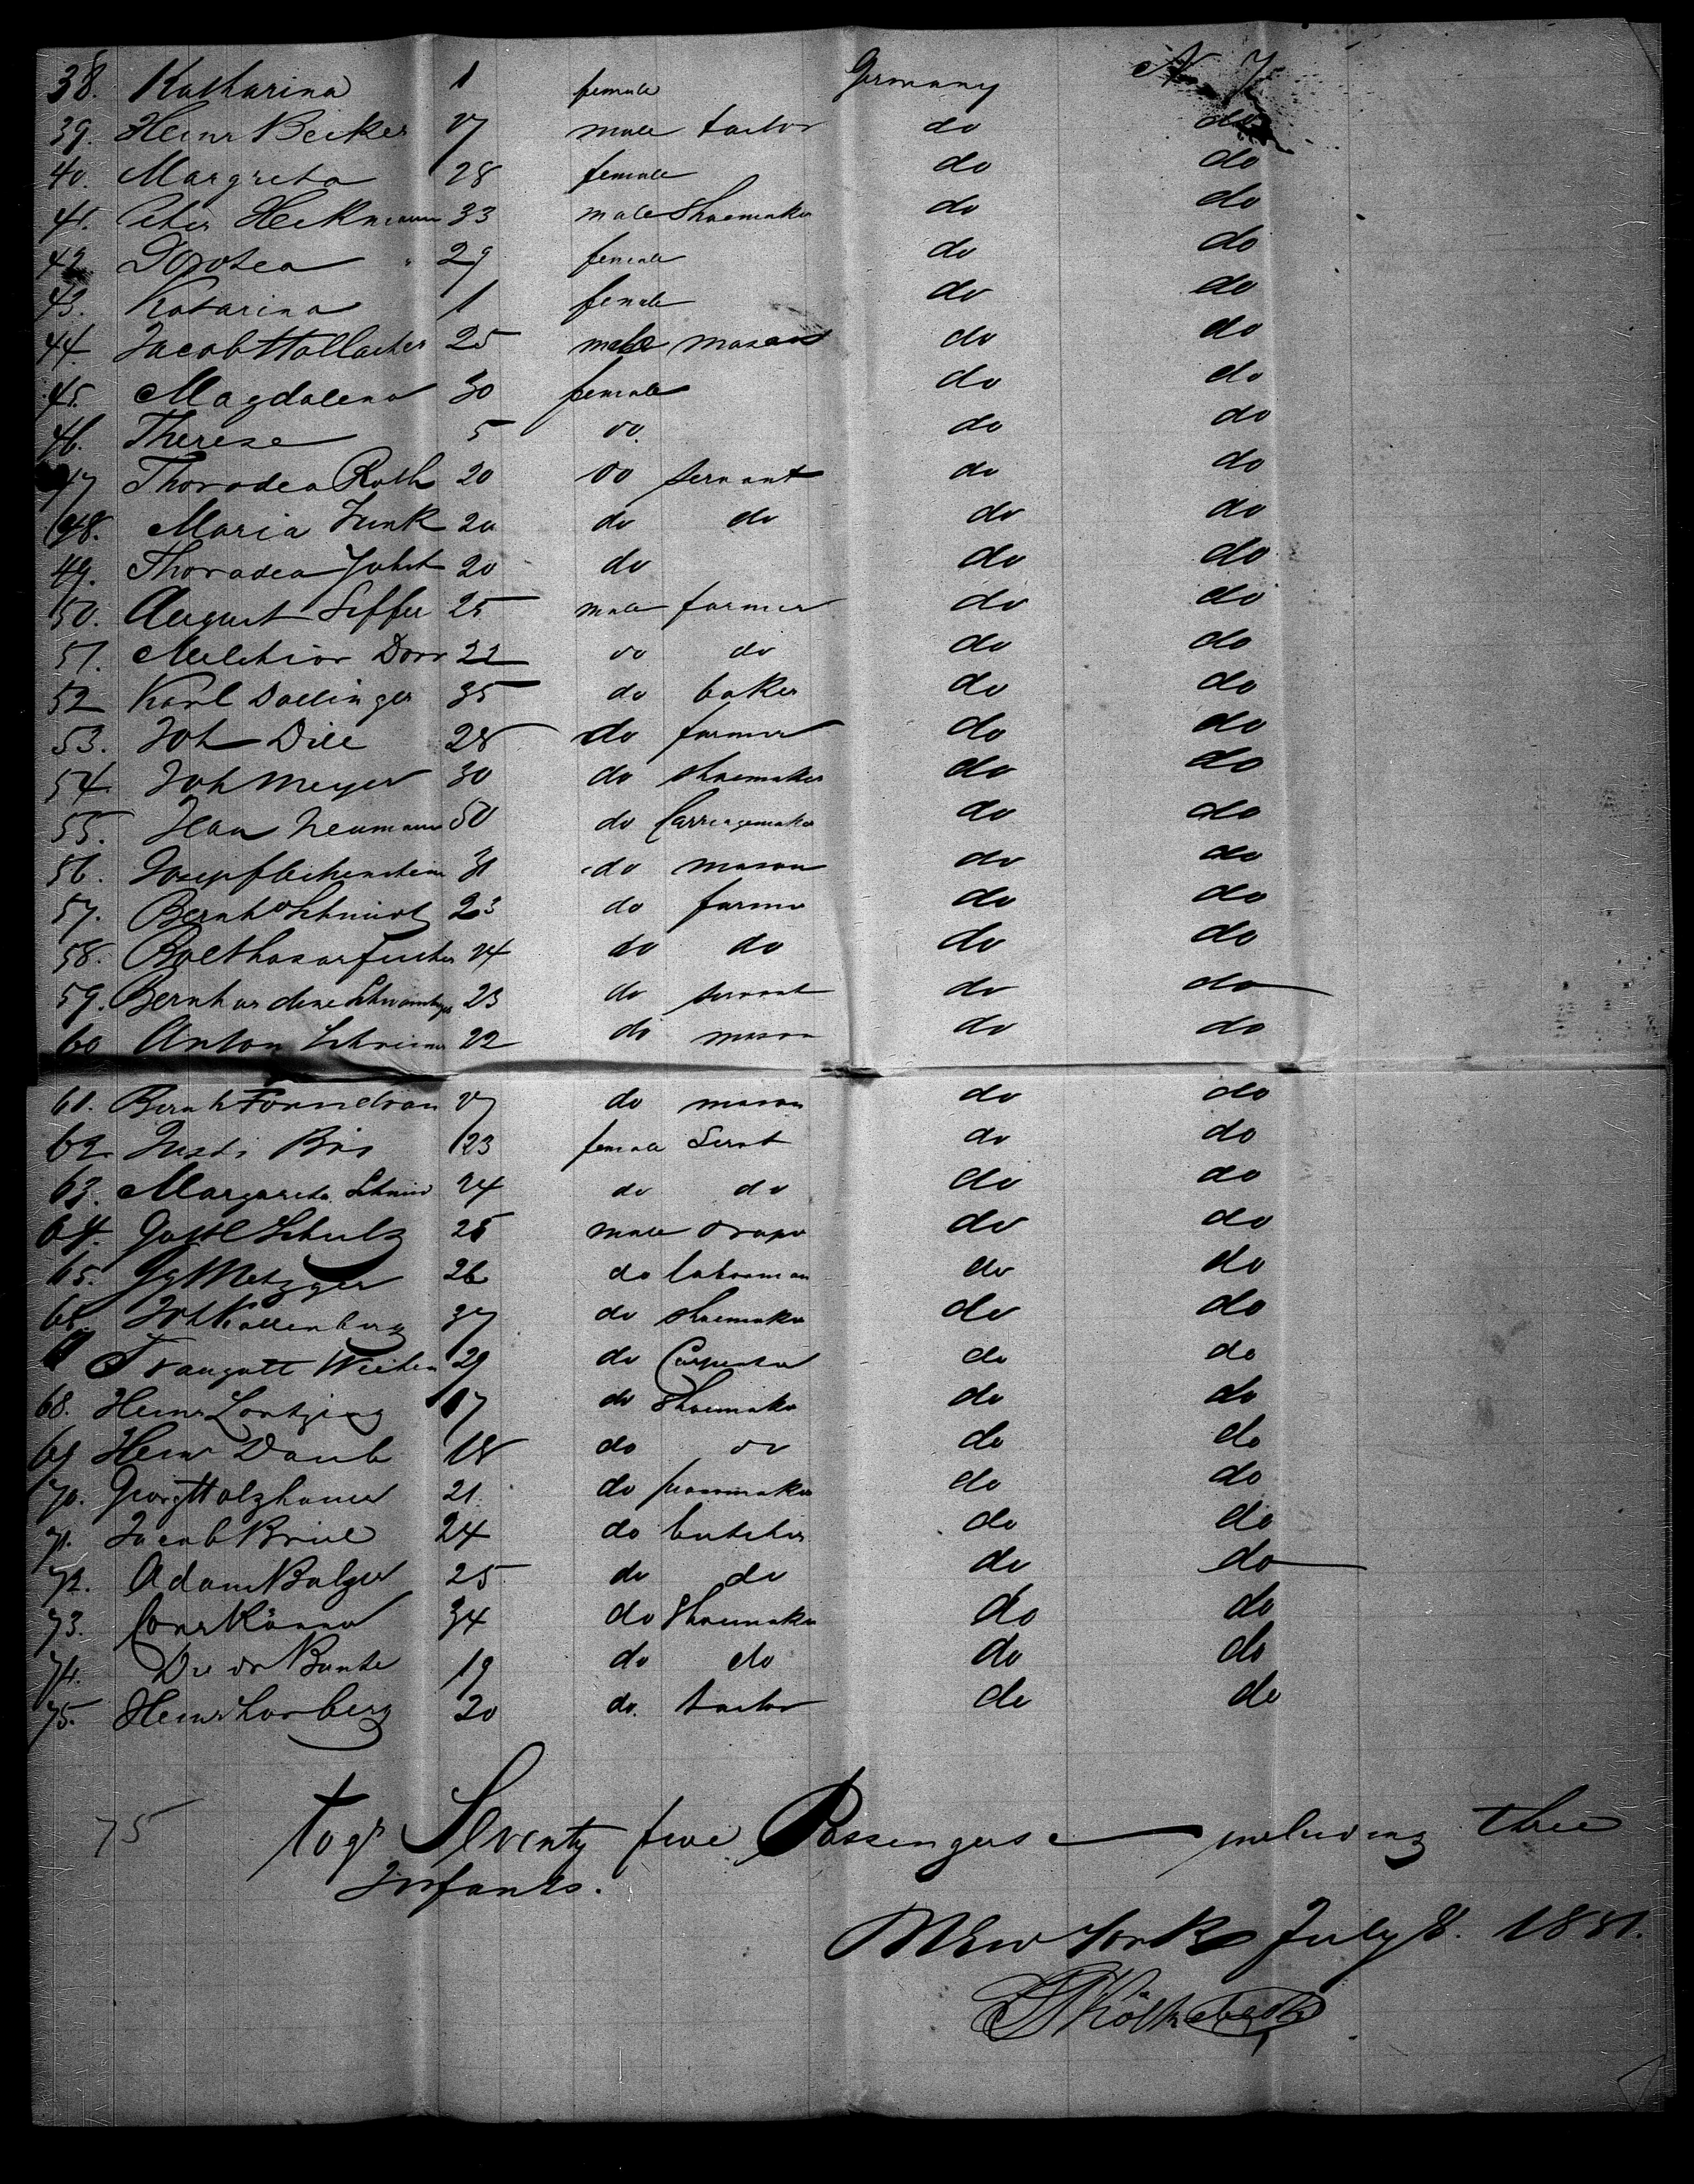 38. Katharina 1 female Germany N. Y
39. Heinr Becker 27 male tailor do do
40. Margreta 28 female do do
41. Peter Heckmann 33 male Shoemaker do do
42. Dorotea " 29 female do do
43. Katarina 1 female do do
44. Jacob Hollacher 25 male mason do do
45. Magdalena 30 female do do
46. Therese 5 do do do
47 Thorodea Roth 20 do servant do do
48. Maria Junk 20 do do do do
49. Thorodea 20 do do do
50. August Siffer 25 male farmer do do
51. Melchior Dorr 22 do do do do
52 Karl Dollinger 35 do baker do do
53. Joh Dill 28 do farmer do do
54. Joh Meyer 30 do shoemaker do do
55. Neumann 50 do Carriagemaker do do
56. 31 do mason do do
57. Bernhd Schmidt 23 do farmer do do
58. Balthasar Fischer 24 do do do do
59. Bernhardine 23 do servant do do
60 Anton Schreiner 22 do mason do do
61. Bernh 27 do mason do do
62. 23 female Servt do do
63. Margareta Schmid 24 do do do do
64. Gottl Schulz 25 male do do
65. Gg Metzger 26 do do do
66. Joh Kallenberg 37 do shoemaker do do
Traugott 29 do Carpenter do do
68. Heinr Lortzing 17 do Shoemaker do do
69 Heinr Daub 18 do do do do
70. Georg Holzhauer 21. do do do
71. Jacob Briel 24 do butcher do do
72. Adam Balzer 25 do do do do
73. Conr 34 do Shoemaker do do
74. Bunte 19 do do do do
75. Heinr Lorberg 20 do. tailor do do
75 togr Seventy five Passengers including three
Infants.
New York July 8. 1851.